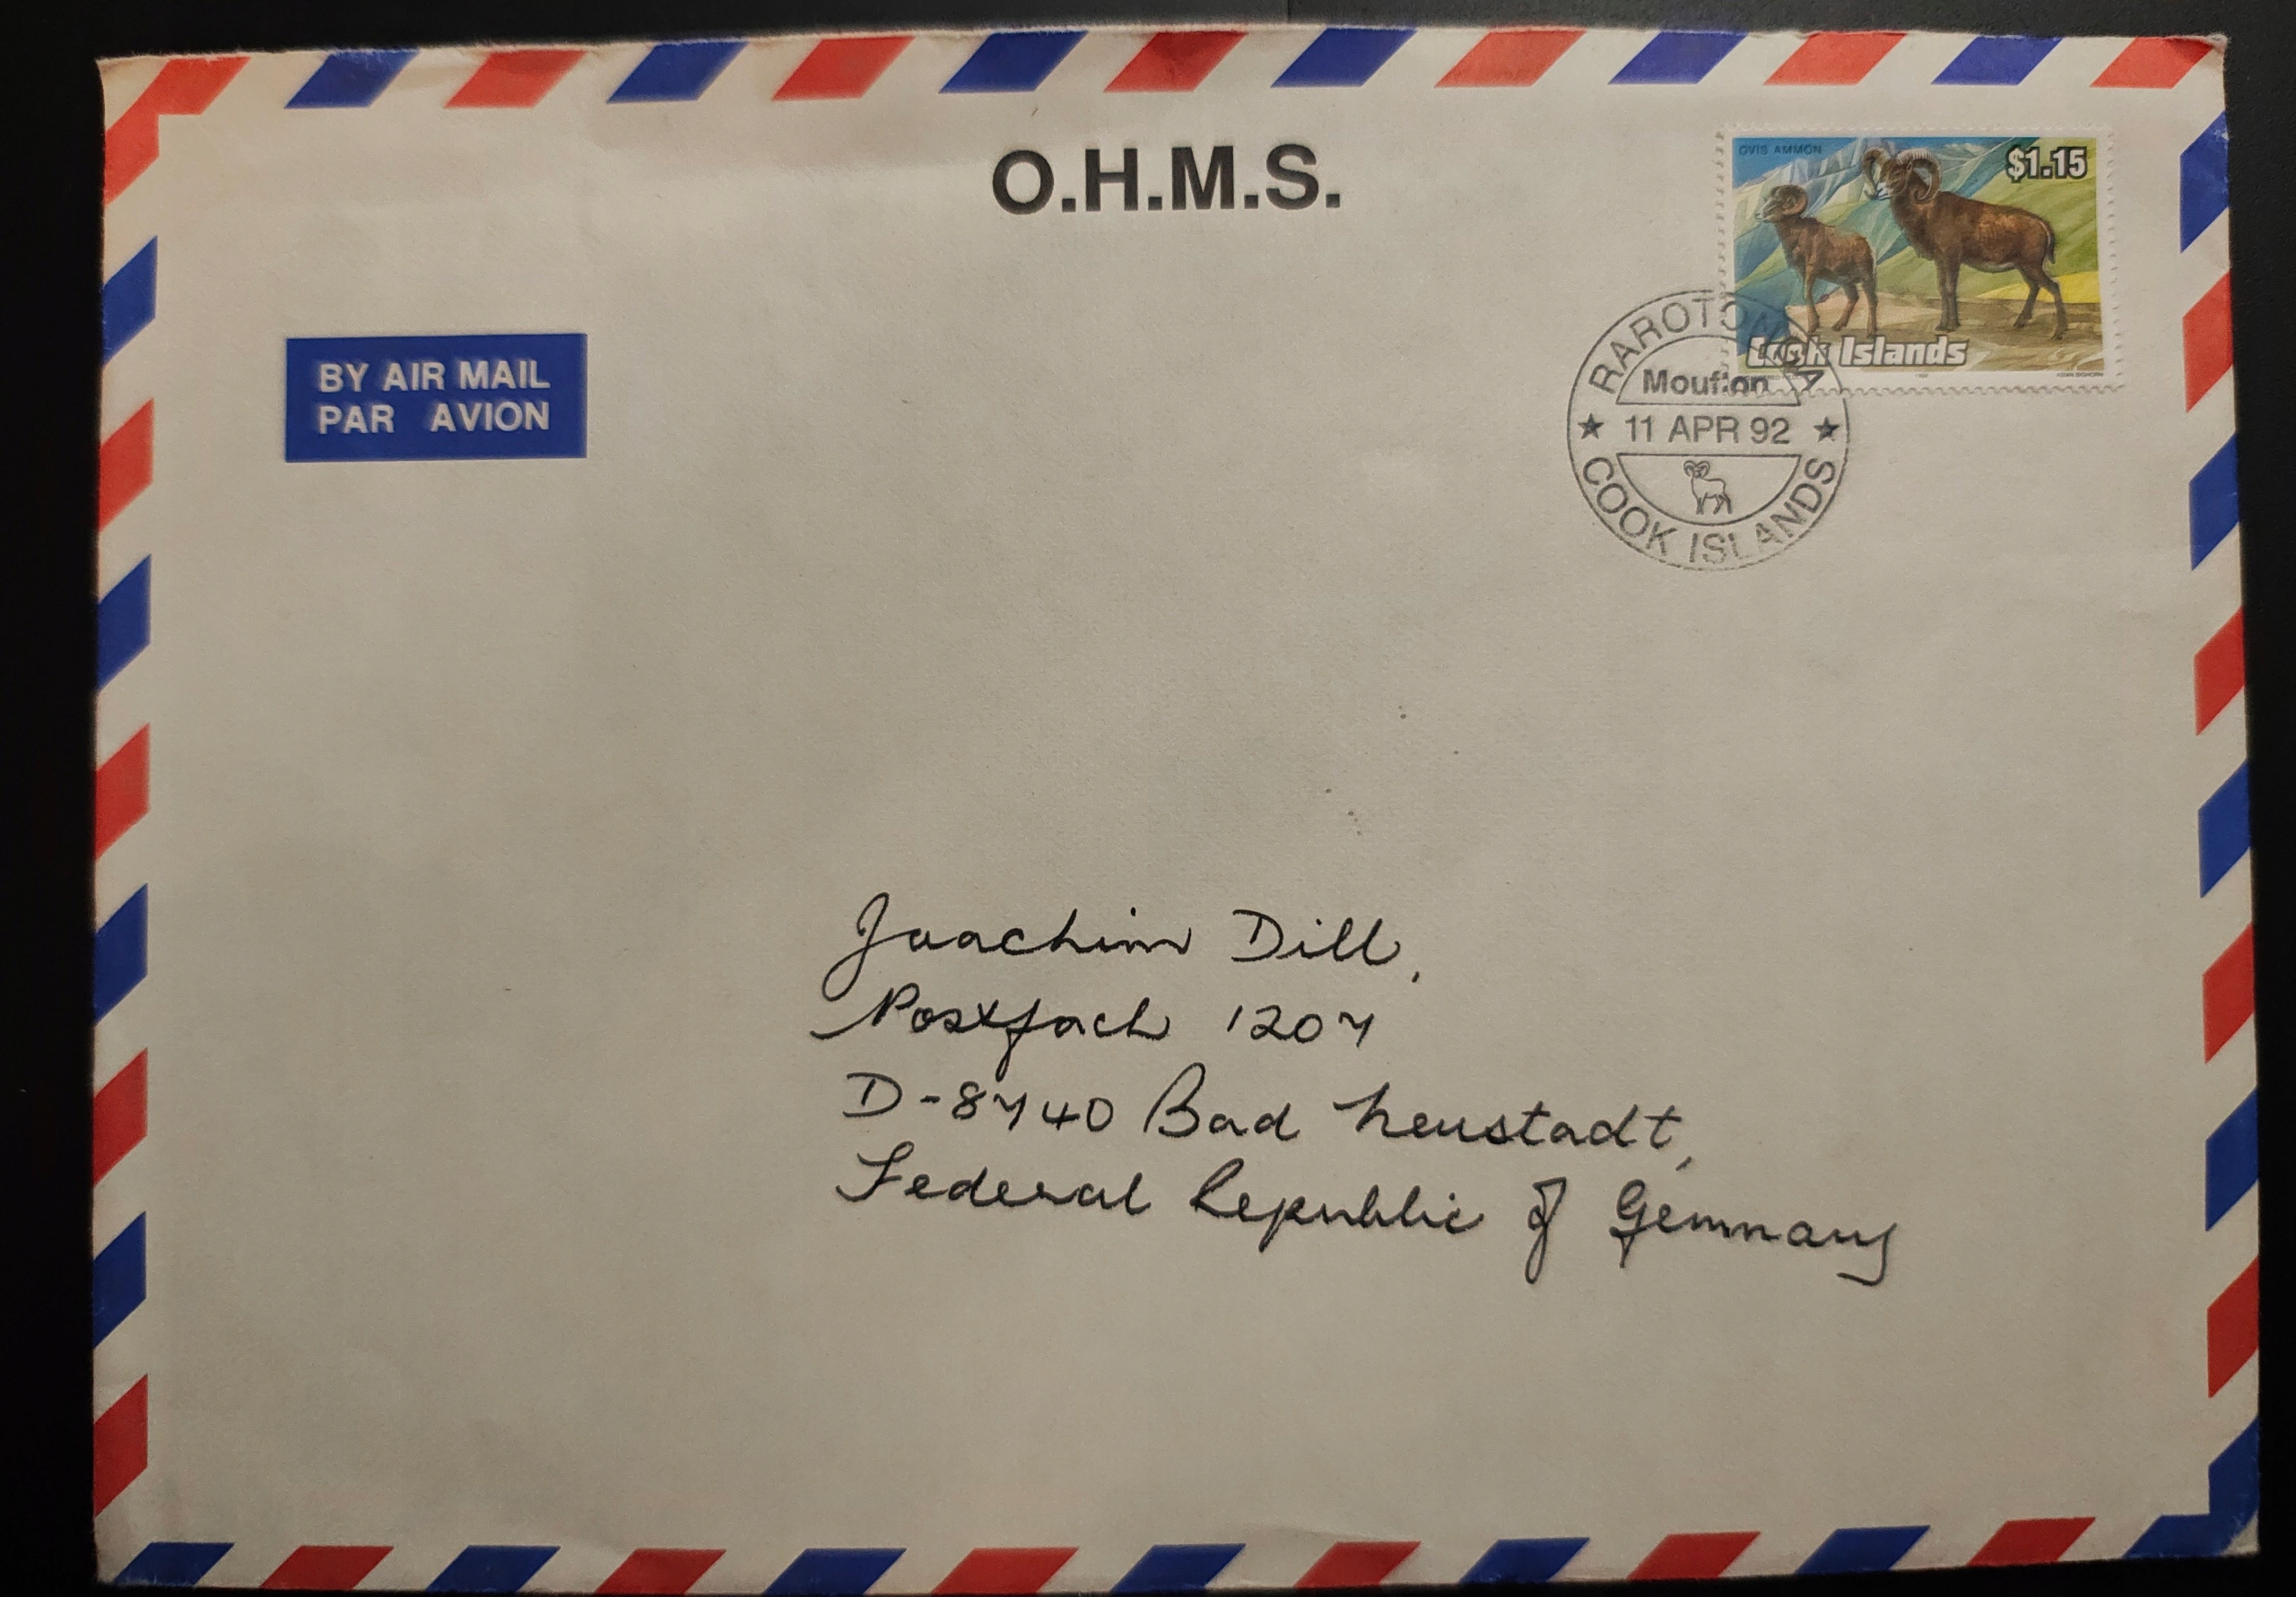 O.H.M.S.
OVIS AMMON
$1.15
Cook Islands
BY AIR MAIL
PAR AVION
RAROTONGA
Mouflon
★ 11 APR 92 ★
COOK ISLANDS
Joachim Dill,
Postfach 1207
D-8740 Bad Neustadt,
Federal Republic of Germany